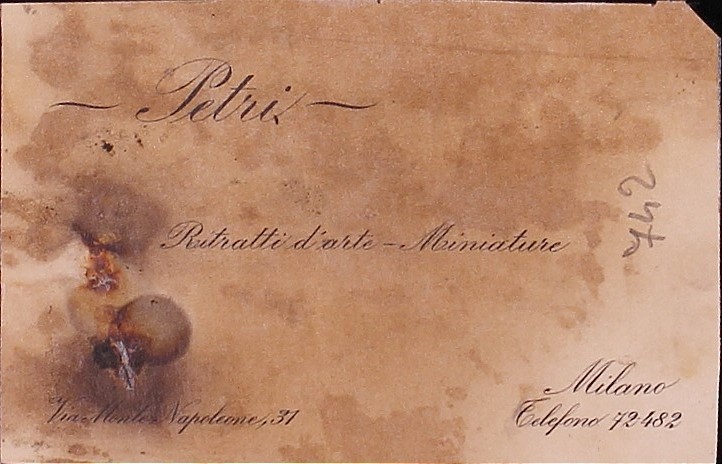 — Petri —
Ritratti d'arte - Miniature
742
Via Monte Napoleone, 31
Milano
Telefono 72-482